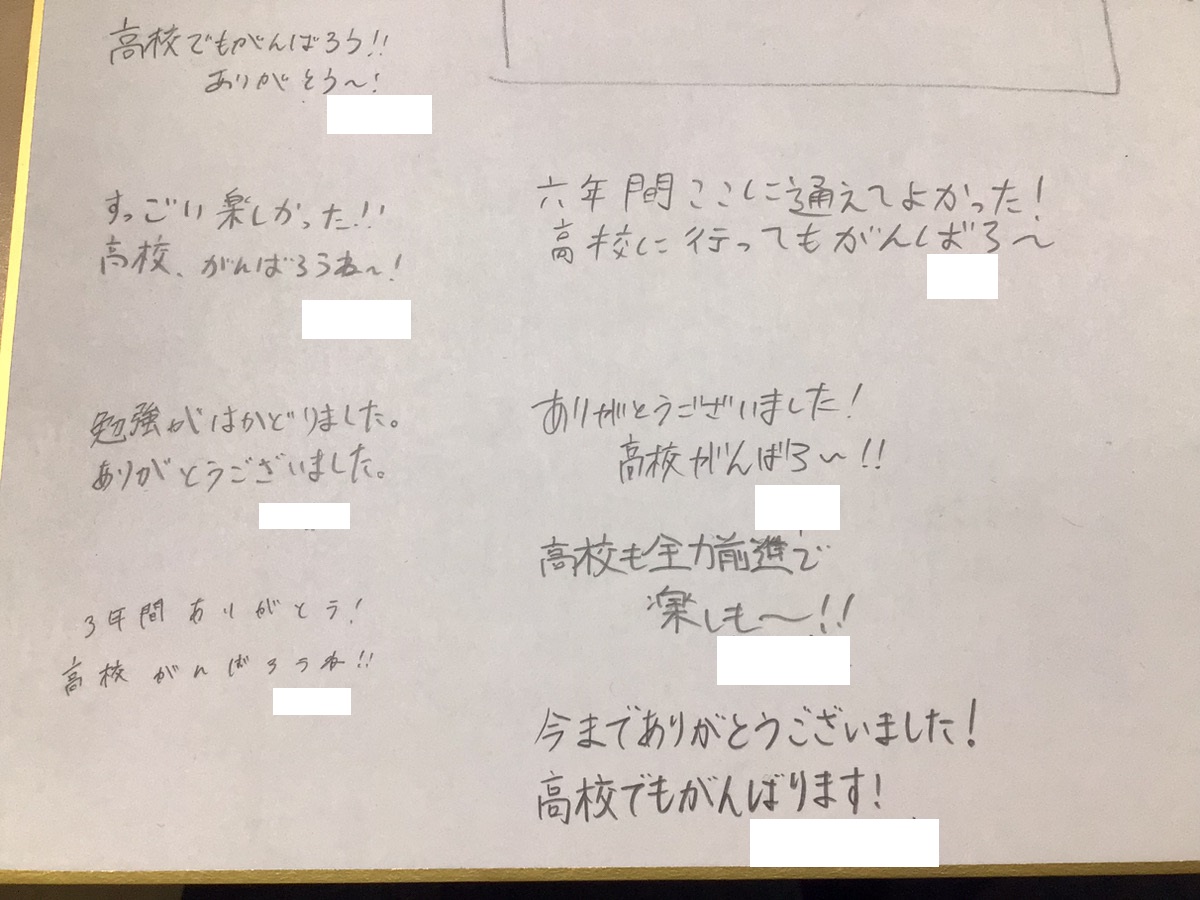 高校でもがんばろう!!
ありがとう〜!
すっごい楽しかった!!
高校、がんばろうね〜!
勉強がはかどりました。
ありがとうございました。
3年間ありがとう!
高校がんばろうね!!
六年間ここに通えてよかった!
高校に行ってもがんばろ〜
ありがとうございました!
高校がんばろ〜!!
高校も全力前進で
楽しも〜!!
今までありがとうございました!
高校でもがんばります!